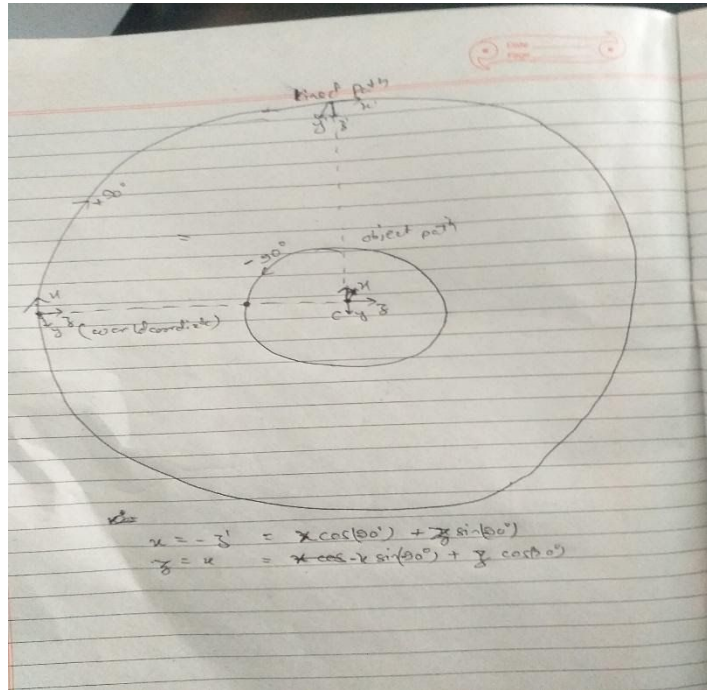 Date
Page
Kinect path
x'
y' z'
+90°
object path
-90°
x
x
z
c y z
y (world coordinate)
x = - z' = x cos(90°) + z sin(90°)
z = x = x cos -x sin(90°) + z cos(90°)